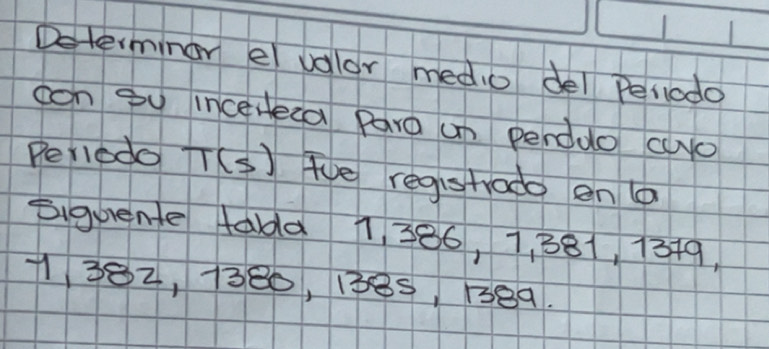 Determinar el valor medio del Periodo
con su incerteza Para un pendulo cuyo
Periedo T(s) fue registrado en la
Siguiente tabla 1,386, 1,381, 1379,
1,382, 1380, 1385, 1389.